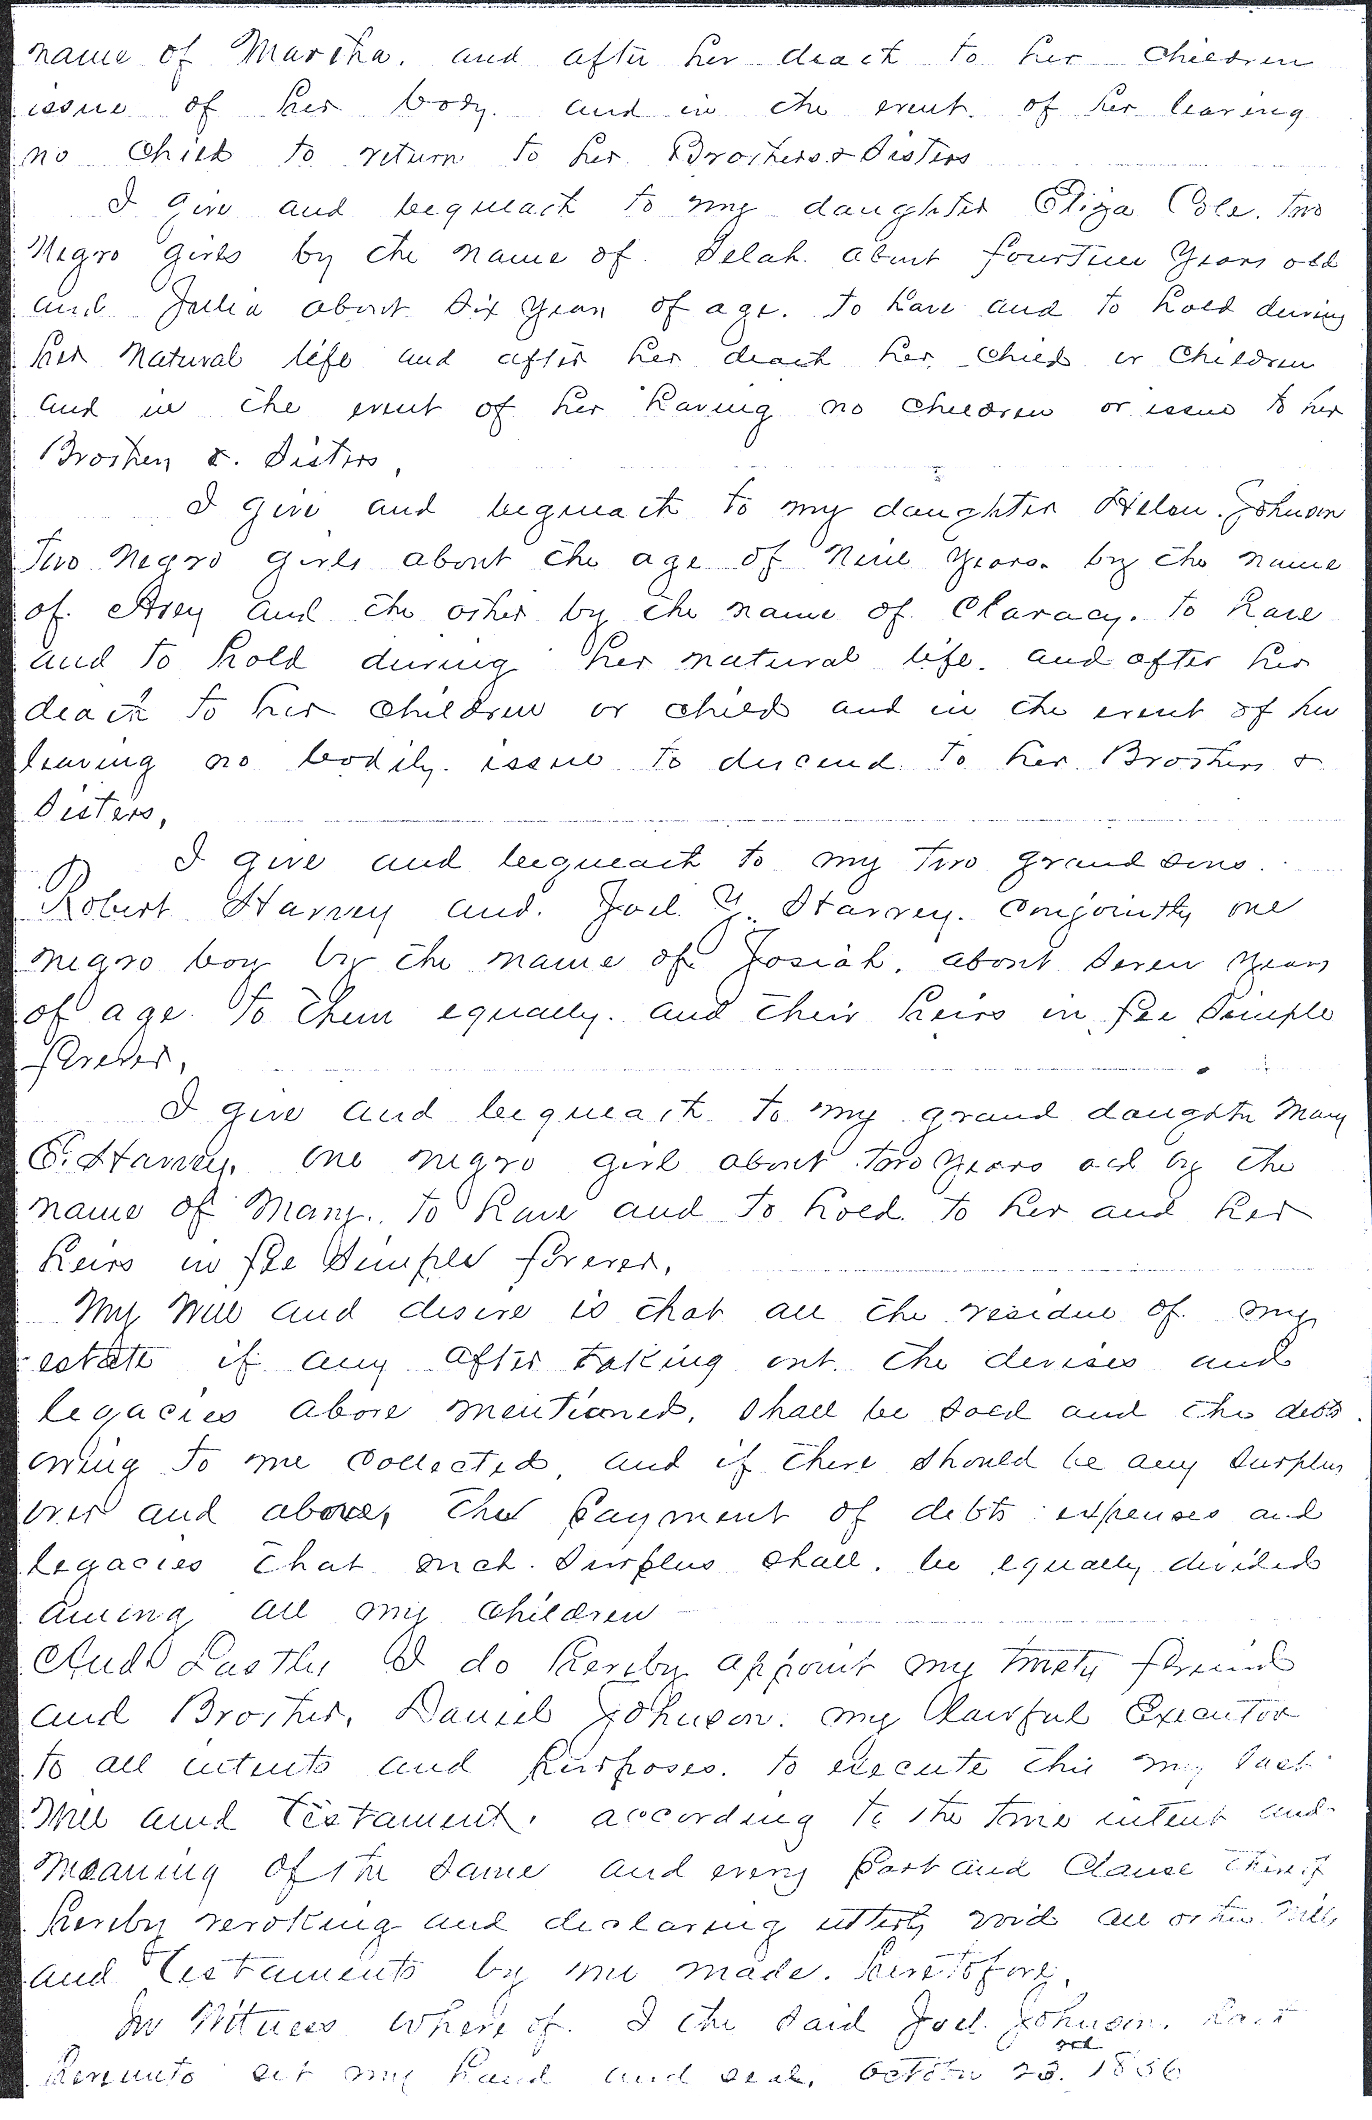 name of Martha. and after her death to her children
issue of her body. and in the event. of her leaving
no child to return to her Brothers & Sisters
I give and bequeath to my daughter Eliza Cole. two
Negro girls by the name of Selah. about fourteen years old
and Julia about Six years of age. to have and to hold during
her Natural life and after her death her child or children
and in the event of her having no children or issue to her
Brothers &. Sisters,
I give and bequeath to my daughter Helen. Johnson
two negro girls about the age of Nine years. by the name
of Avey and the other by the name of Claracy. to have
and to hold during her natural life. and after her
death to her children or child and in the event of her
leaving no bodily. issue to descend to her Brothers &
Sisters,
I give and bequeath to my two grand sons.
Robert Harvey and. Joel. Y. Harvey. conjointly one
negro boy by the name of Josiah. about Seven years
of age to them equally. and their heirs in fee Simple
forever,
I give and bequeath to my grand daughter Mary
E. Harvey. one negro girl about two years old by the
name of Mary. to have and to hold. to her and her
heirs in fee Simple forever,
My Will and desire is that all the residue of my
estate if any after taking out the devises and
legacies above mentioned, shall be sold and the debts
owing to me collected, and if there should be any Surplus
over and above, the payment of debts expenses and
legacies that such. Surplus shall. be equally divided
among all my children
And Lastly I do hereby appoint my trusty friend
and Brother, Daniel Johnson. my lawful Executor
to all intents and purposes. to execute this my last
Will and Testament. according to the true intent and
Meaning of the same and every part and Clause thereof
hereby revoking and declaring utterly void all other Wills
and Testaments by me made. heretofore,
In Witness where of. I the Said Joel. Johnson. have
hereunto set my hand and seal, October 23rd. 1836